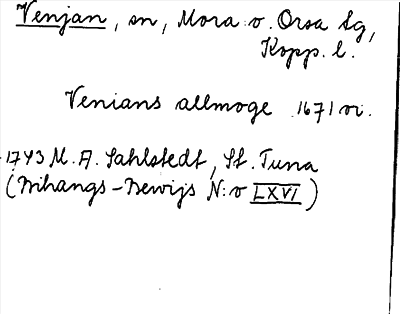 Venjan, sn, Mora o. Orsa tg,
Kopp. l.
Venians allmoge 1671
1743 M. A. Sahlstedt, St. Tuna
(Bihangs-Bewijs N:o LXVI)